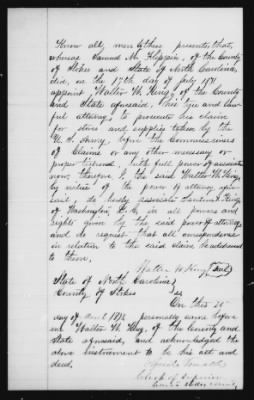 Know all, men by these presents, that,
whereas Samuel M. Flippin, of the County
of Stokes and State of North Carolina,
did, on the 17th day of July 1871
appoint Walter W. King, of the County
and State aforesaid, his true and law-
ful attorney, to prosecute his claim
for stores and supplies taken by the
U. S. Army, before the Commissioners
of Claims or any other necessary or
proper tribunal with full power of
now, therefore I, the said Walter W. King,
by virtue of the power of attorney afore-
said do hereby associate King
of Washington, D. C., in all powers and
rights given by the said power of attorney,
and do request that all correspondence
in relation to the said claim be addressed
to them.
Walter W. King (Seal)
State of North Carolina
County of Stokes
On this
day of 187 personally came before
me Walter W. King, of the County and
State aforesaid, and acknowledged the
above instrument to be his act and
deed.
Clerk of Superior
Court